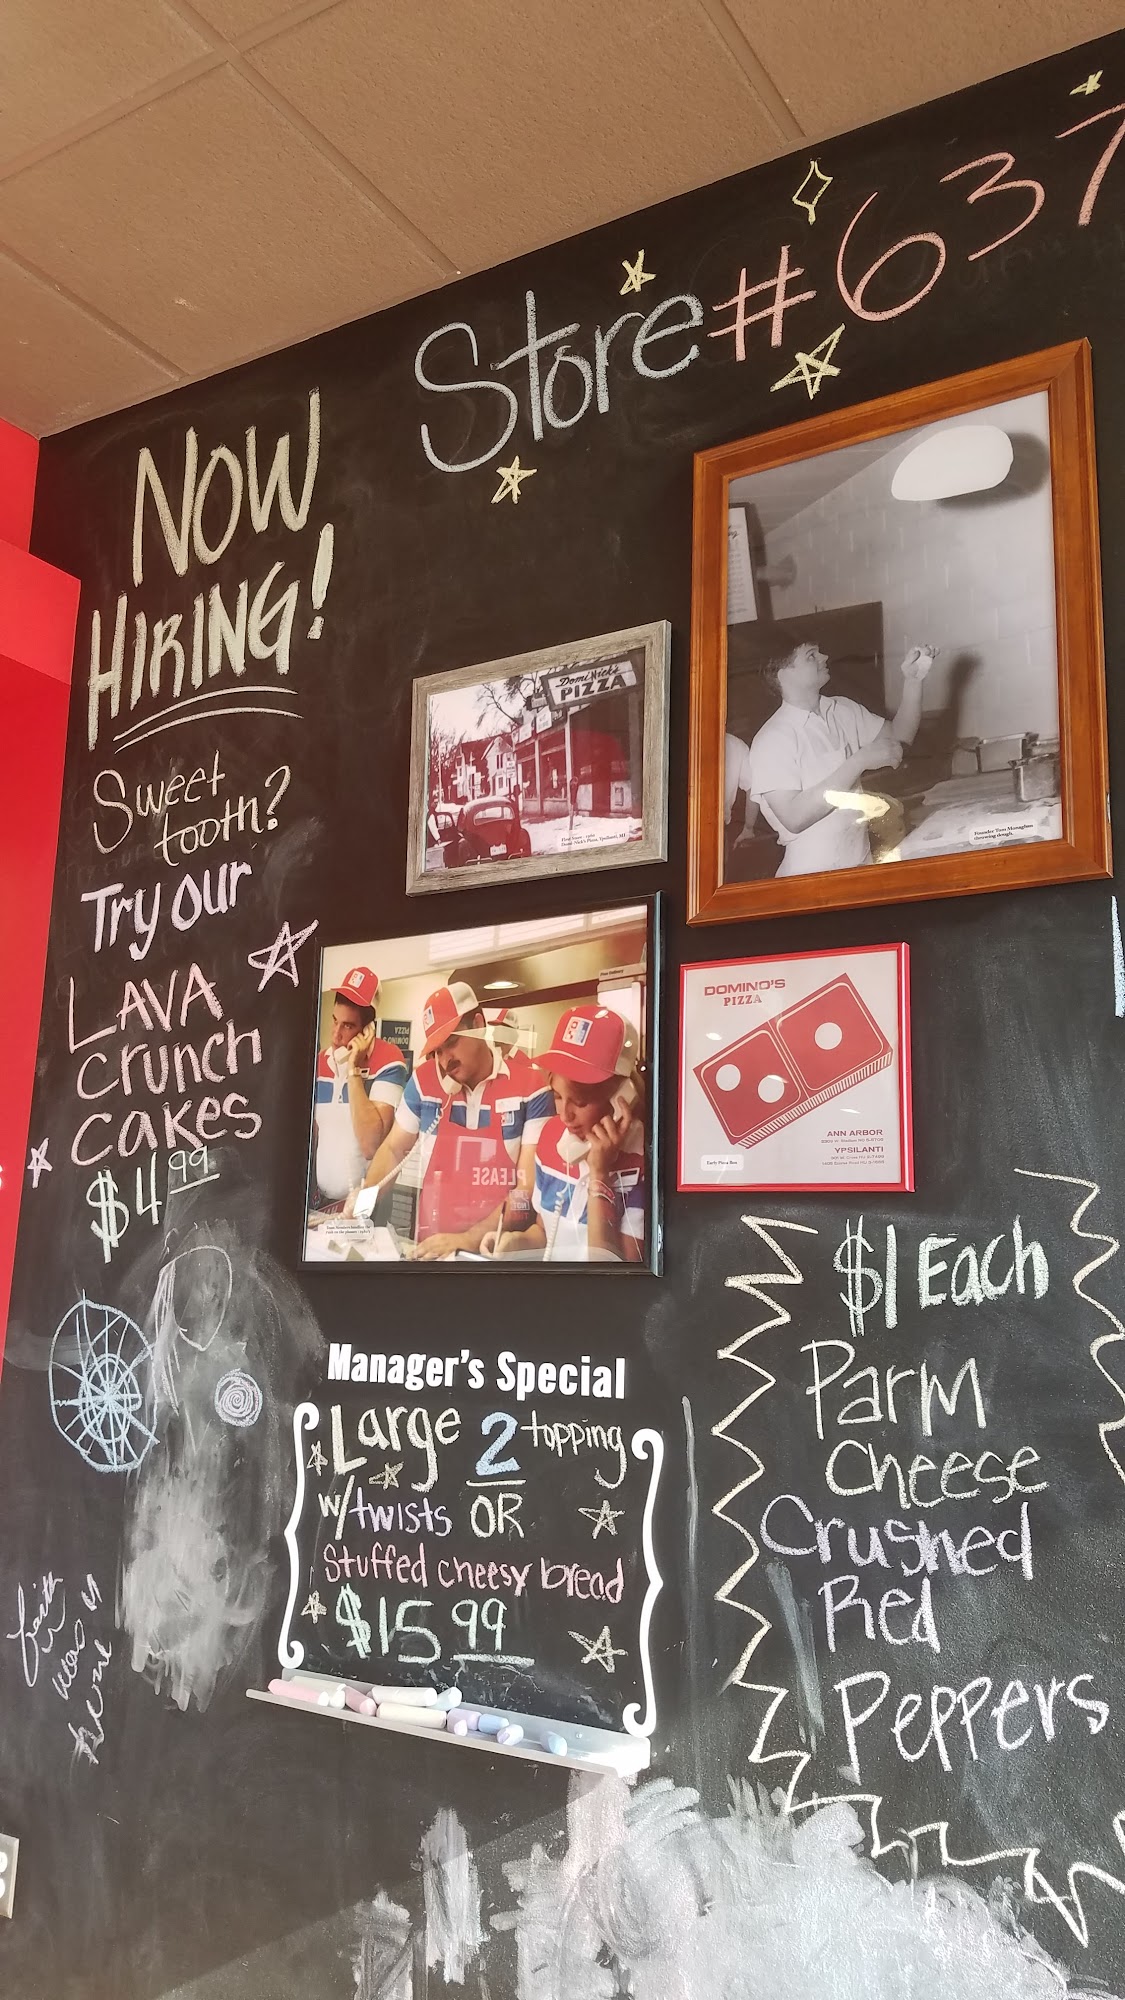 Store #637
NOW
HIRING!
Sweet
tooth?
Try our
LAVA
crunch
cakes
$4.99
DomiNick's
PIZZA
Founder Tom Monaghan
throwing dough.
DOMINO'S
PIZZA
ANN ARBOR
YPSILANTI
Early Pizza Box
DOMINO'S
PIZZA
PLEASE
Manager's Special
Large 2 topping
w/twists OR
Stuffed cheesy bread
$15.99
$1 Each
Parm
Cheese
Crushed
Red
Peppers
faith
was
here